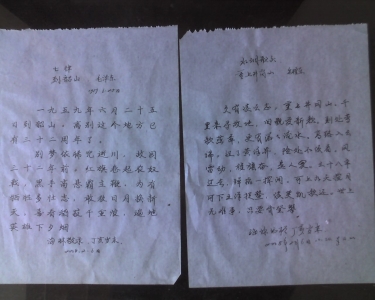 七律
到韶山 毛泽东
一九五九年六月二十五
日到韶山。离别这个地方已
有三十二周年了。
别梦依稀咒逝川,故园
三十二年前。红旗卷起农奴
戟,黑手高悬霸主鞭。为有
牺牲多壮志,敢教日月换新
天。喜看稻菽千重浪,遍地
英雄下夕烟
水调歌头
重上井冈山 毛泽东
久有凌云志,重上井冈山。千
里来寻故地,旧貌变新颜。到处莺
歌燕舞,更有潺潺流水,高路入云
端。过了黄洋界,险处不须看。风
雷动,旌旗奋,是人寰。三十八年
过去,弹指一挥间。可上九天揽月,
可下五洋捉鳖,谈笑凯歌还。世上
无难事,只要肯登攀